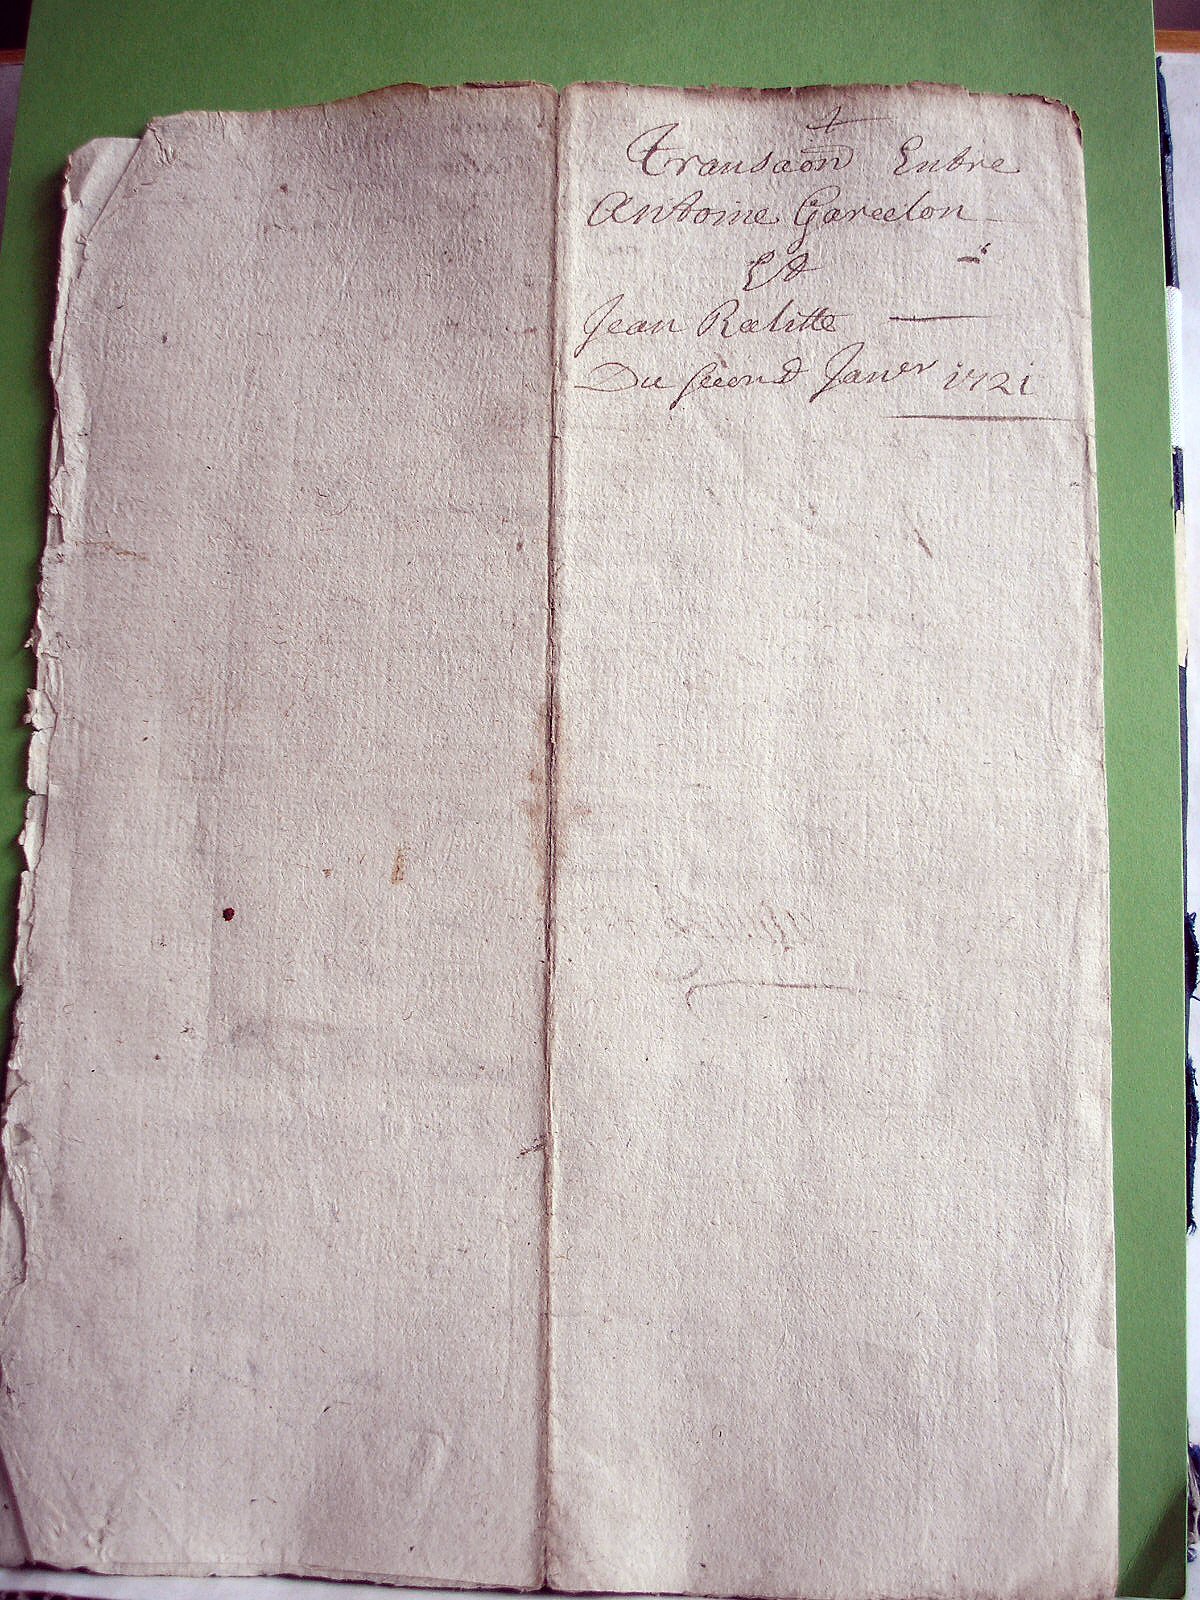 Transaon Entre
Antoine Garcelon
Et
Jean Rochitte
Du second Janer 1721